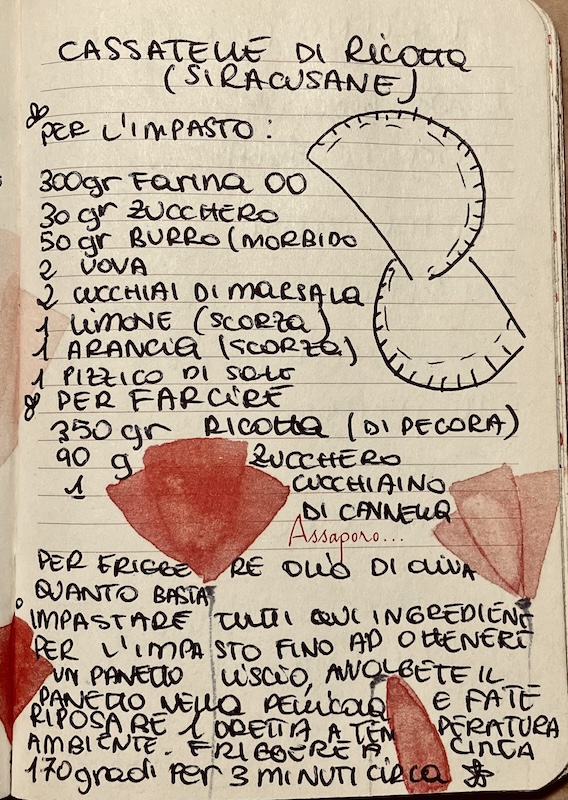 CASSATELLE DI RICOTTA
(SIRACUSANE)
PER L'IMPASTO:
300gr FARINA 00
30 gr ZUCCHERO
50 gr BURRO (MORBIDO
2 UOVA
2 CUCCHIAI DI MARSALA
1 LIMONE (SCORZA)
1 ARANCIA (SCORZA)
1 PIZZICO DI SALE
PER FARCIRE
350 gr RICOTTA (DI PECORA)
90 g ZUCCHERO
1 CUCCHIAINO
DI CANNELLA
Assaporo...
PER FRIGGERE OLIO DI OLIVA
QUANTO BASTA
IMPASTARE TUTTI GLI INGREDIENTI
PER L'IMPASTO FINO AD OTTENERE
UN PANETTO LISCIO, AVVOLGETE IL
PANETTO NELLA PELLICOLA E FATE
RIPOSARE 1 ORETTA A TEMPERATURA
AMBIENTE. FRIGGERE A CIRCA
170 gradi PER 3 MINUTI CIRCA